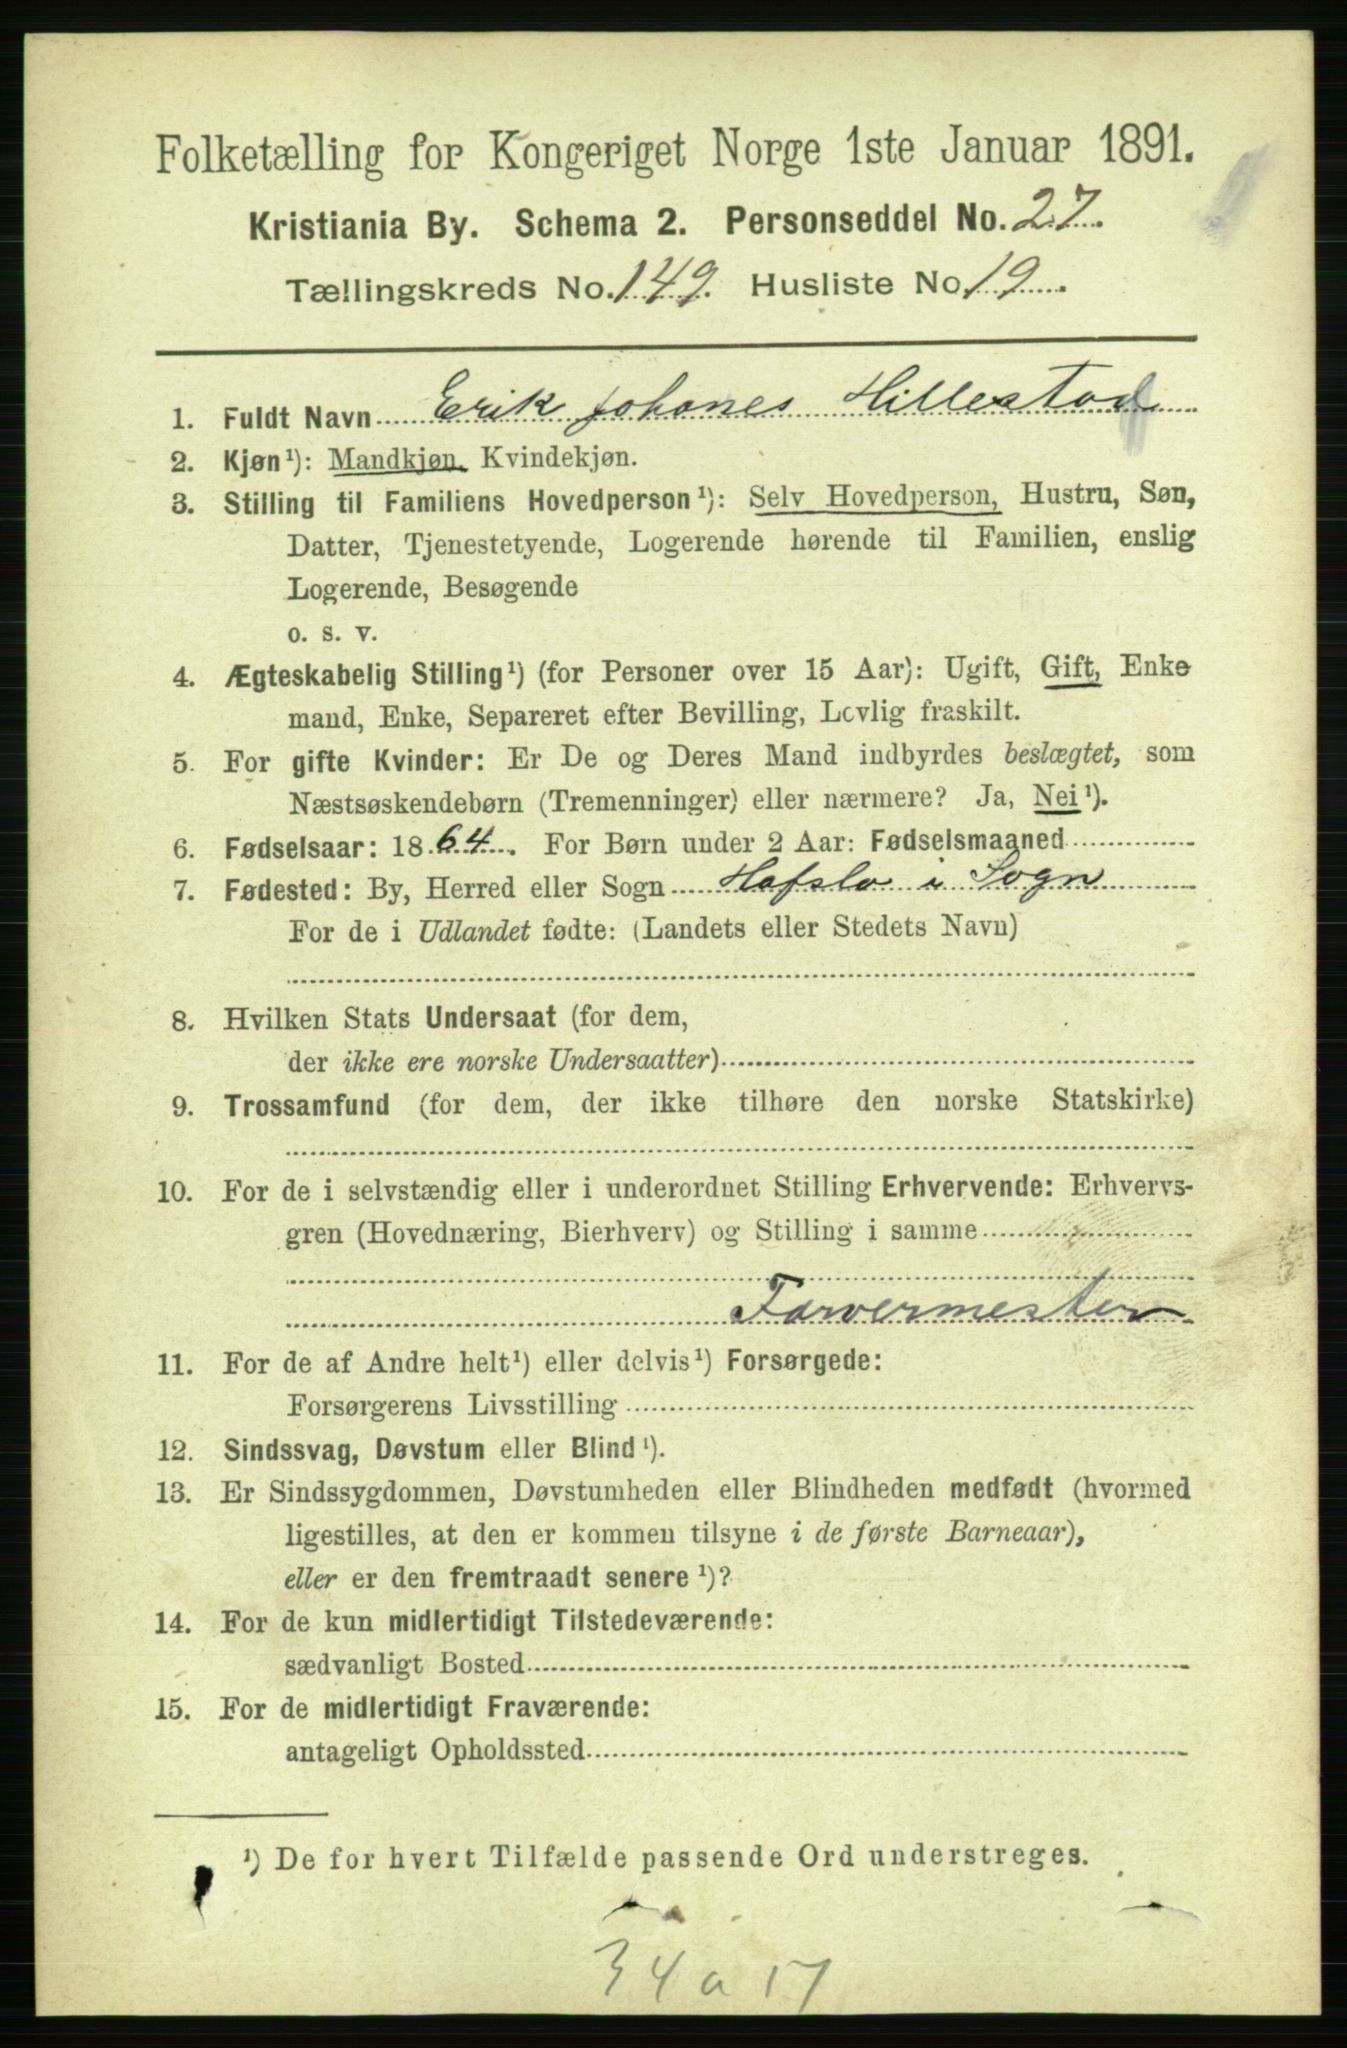 Folketælling for Kongeriget Norge 1ste Januar 1891.
Kristiania By. Schema 2. Personseddel No. 27.
Tællingskreds No. 149. Husliste No. 19.
1. Fuldt Navn Erik Johanes Hillestad
2. Kjøn¹): Mandkjøn, Kvindekjøn.
3. Stilling til Familiens Hovedperson¹): Selv Hovedperson, Hustru, Søn,
Datter, Tjenestetyende, Logerende hørende til Familien, enslig
Logerende, Besøgende
o. s. v.
4. Ægteskabelig Stilling¹) (for Personer over 15 Aar): Ugift, Gift, Enke
mand, Enke, Separeret efter Bevilling, Lovlig fraskilt.
5. For gifte Kvinder: Er De og Deres Mand indbyrdes beslægtet, som
Næstsøskendebørn (Tremenninger) eller nærmere? Ja, Nei¹).
6. Fødselsaar: 1864. For Børn under 2 Aar: Fødselsmaaned
7. Fødested: By, Herred eller Sogn Hafslo i Sogn
For de i Udlandet fødte: (Landets eller Stedets Navn)
8. Hvilken Stats Undersaat (for dem,
der ikke ere norske Undersaatter)
9. Trossamfund (for dem, der ikke tilhøre den norske Statskirke)
10. For de i selvstændig eller i underordnet Stilling Erhvervende: Erhvervs-
gren (Hovednæring, Bierhverv) og Stilling i samme
Farvermester
11. For de af Andre helt¹) eller delvis¹) Forsørgede:
Forsørgerens Livsstilling
12. Sindssvag, Døvstum eller Blind¹).
13. Er Sindssygdommen, Døvstumheden eller Blindheden medfødt (hvormed
ligestilles, at den er kommen tilsyne i de første Barneaar),
eller er den fremtraadt senere¹)?
14. For de kun midlertidigt Tilstedeværende:
sædvanligt Bosted
15. For de midlertidigt Fraværende:
antageligt Opholdssted
¹) De for hvert Tilfælde passende Ord understreges.
34 a 17